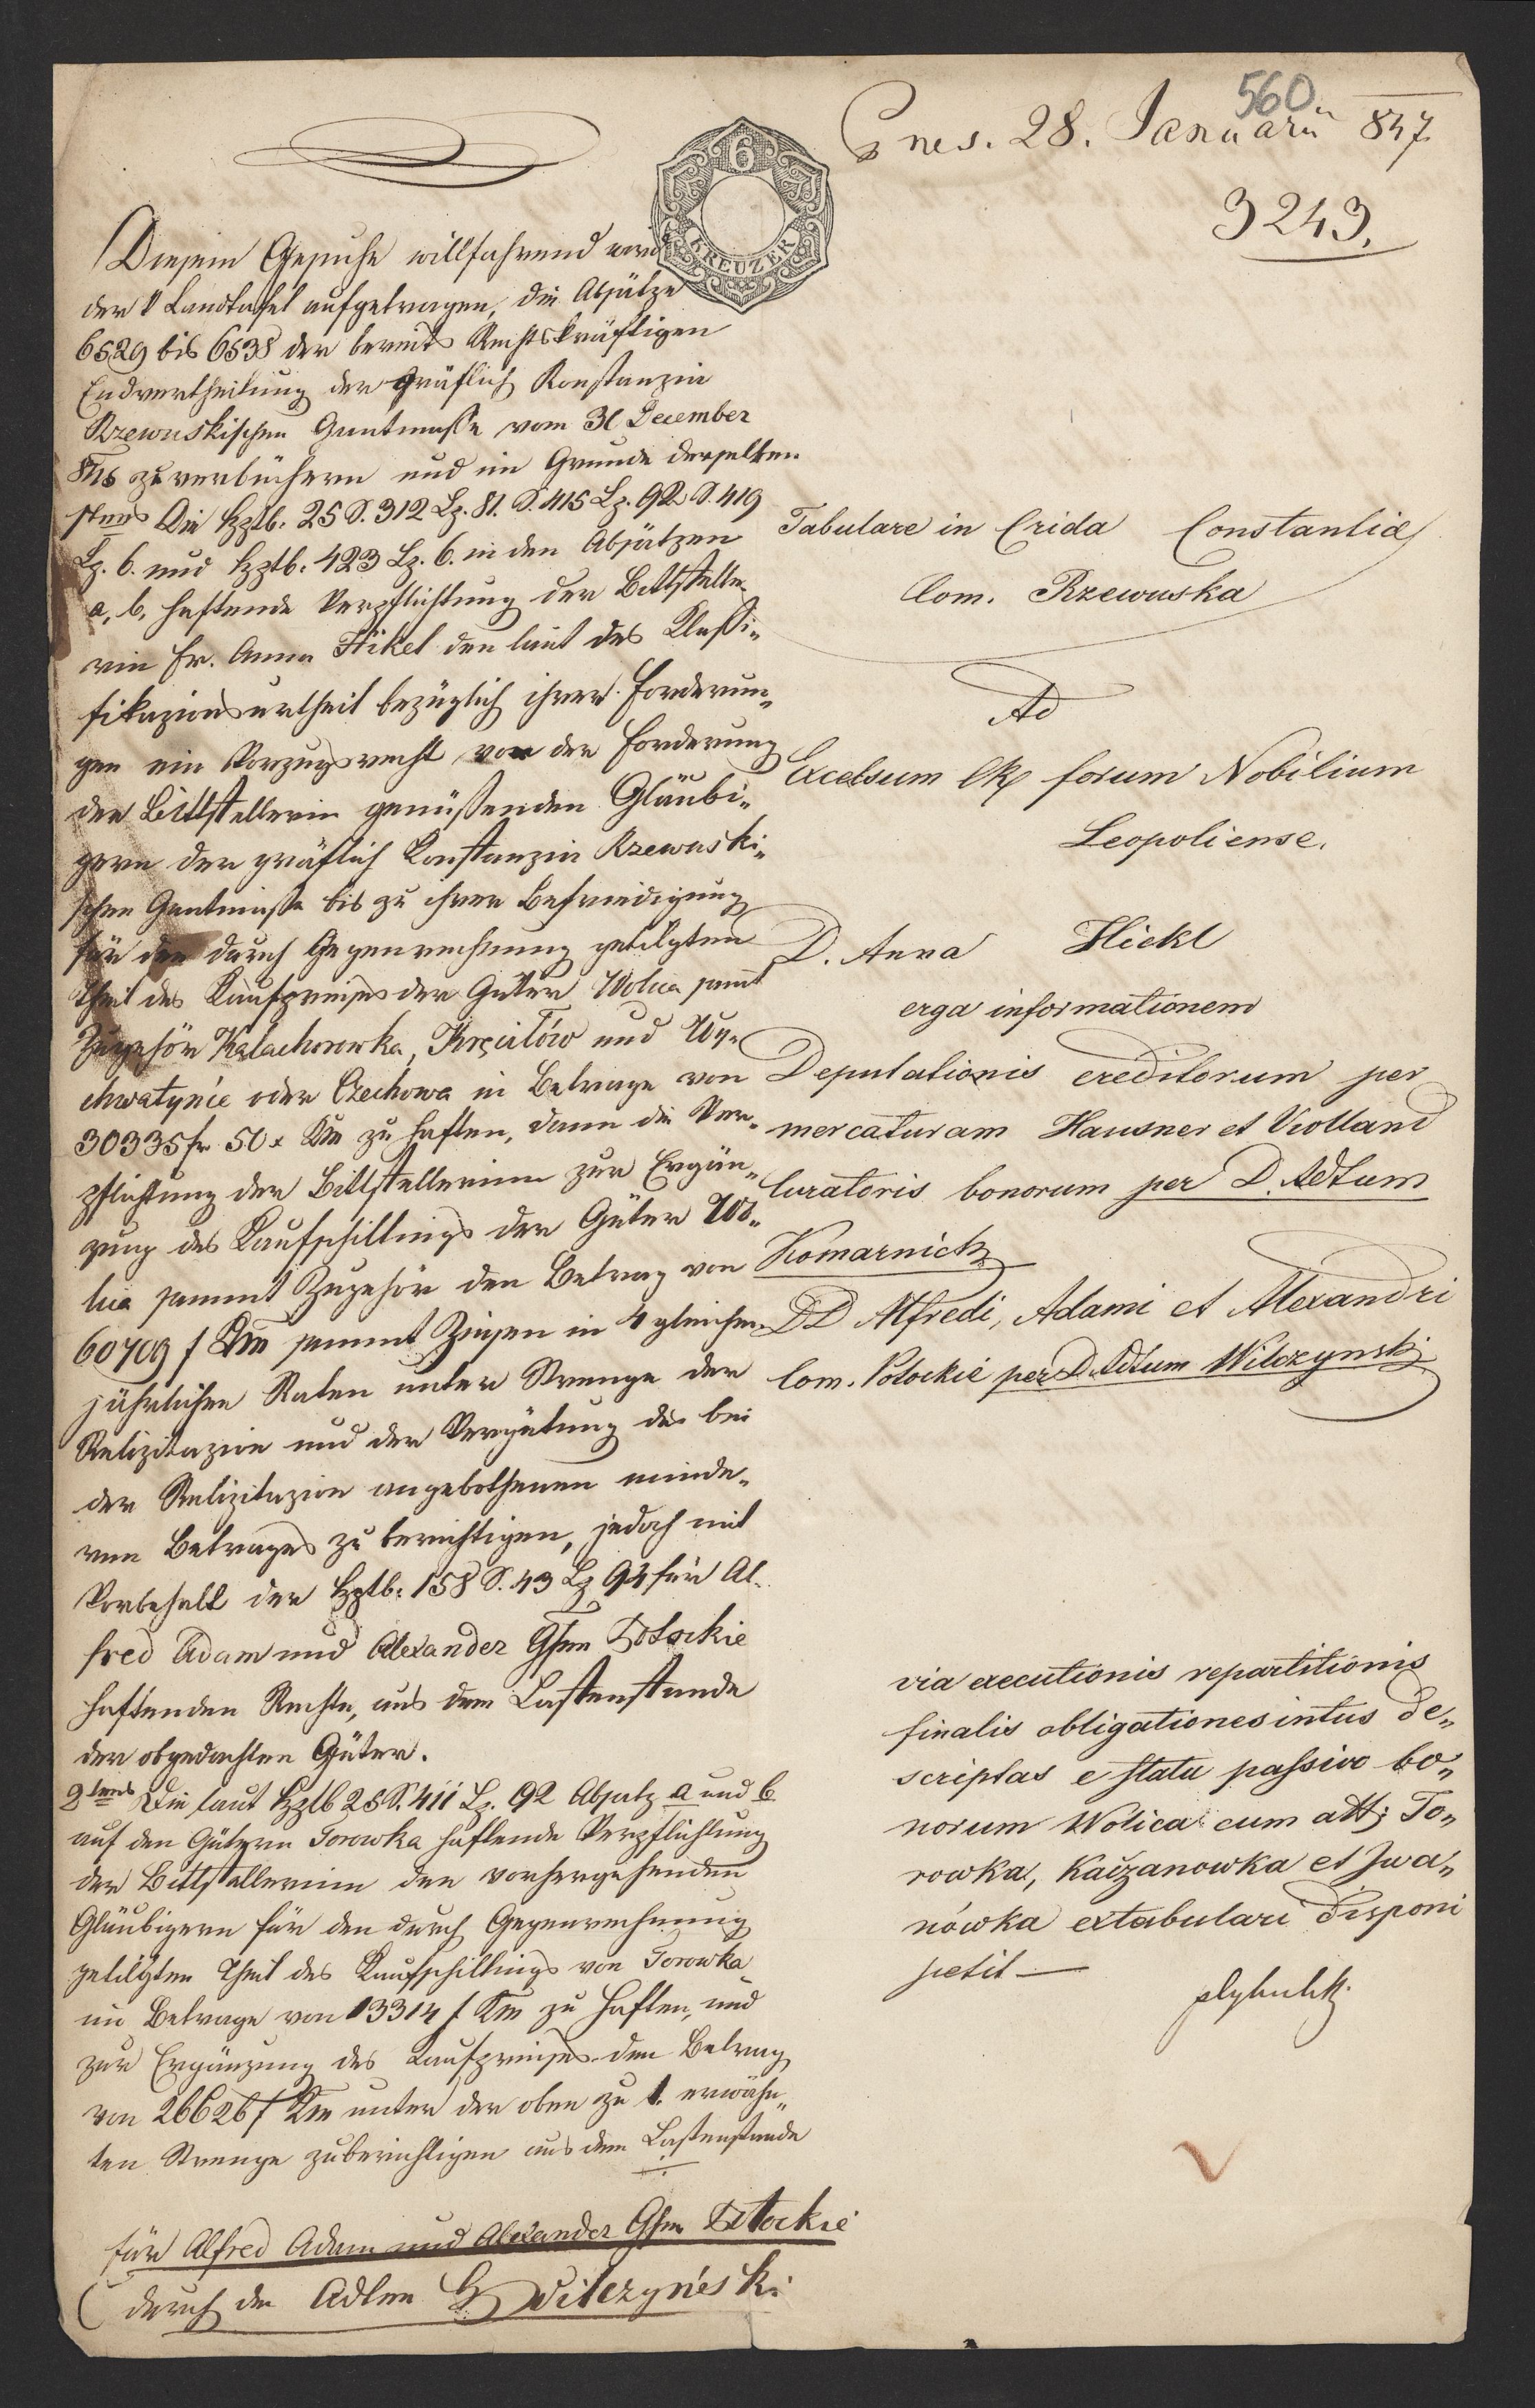 560
Pnes. 28. Januarii 847
3243.
6
KREUZER
Diesem Gesuche willfahrend wird
der k Landtafel aufgetragen, die Absätze
6529 bis 6538 der bereits Rechtskräftigen
Endvertheilung der gräflich Konstanzia
Rzewuskischen Gantmasse vom 31 December
zu verbüchern und im Grunde derselben
stens Die Hptb. 25 S. 312 Lz. 81. S. 415 Lz. 92 S. 419
Lz. 6. und Hptb. 423 Lz. 6. in den Absätzen
a, b, haftende Verpflichtung der Bittstelle-
rin Fr. Anna Hikel den laut des Klassi-
fikazionsurtheil bezüglich ihrer Forderun-
gen ein Vorzugsrecht vor der Forderung
der Bittstellerin genüssenden Gläubi-
gern der gräflich Konstanzia Rzewuski-
schen Gantmasse bis zu ihrer Befriedigung
für den durch Gegenrechnung getilgten
Theil des Kaufpreises der Güter Wolica sammt
Zugehör Kalachorowka, Kręciłów und Wy-
chwatynie oder Czechowa in Betrage von
30335 fr. 50 x KM zu haften, dann die Ver-
pflichtung der Bittstellerinn zur Ergän-
zung des Kaufschillings der Güter Wo-
lica sammt Zugehör den Betrag von
60709 f KM sammt Zinsen in 4 gleichen
jährlichen Raten unter Strenge der
Relizitazion und der Vergütung des bei
der Relizitazion angebothenen minde-
ren Betrages zu berichtigen, jedoch mit
Vorbehalt der Hptb. 158 S. 43 Lz 94 für Al-
fred Adam und Alexander Gfen Potockie
haftenden Rechte, aus dem Lastenstande
der obgedachten Güter.
2tens Die laut Hptb 25 S. 411 Lz. 92 Absatz a und b
auf den Gütern Torowka haftende Verpflichtung
der Bittstellerinn den vorhergehenden
Gläubigern für den durch Gegenrechnung
getilgten Theil des Kaufschillings von Torowka
im Betrage von 13314 f KM zu haften, und
zur Ergänzung des Kaufpreises den Betrag
von 26626 f KM unter der oben zu 1. erwähn-
ten Strenge zuberichtigen aus dem Lastenstande
für Alfred Adam und Alexander Gfen Potockie
durch den Adten Wilczyński
Tabulare in Crida Constantiæ
Com. Rzewuska
Ad
Excelsum CR forum Nobilium
Leopoliense.
D. Anna Hickl
erga informationem
Deputationis creditorum per
mercaturam Hausner et Violland
Curatoris bonorum per D. Adtum
Komarnicki
DD Alfredi, Adami et Alexandri
Com. Potockie per D. Adtum Wilczynski
via executionis repartitionis
finalis obligationes intus de„
scriptas e statu passivo bo„
norum Wolica cum att; To„
rowka, Kaczanowka et Iwa„
nówka extabulari disponi
petit —